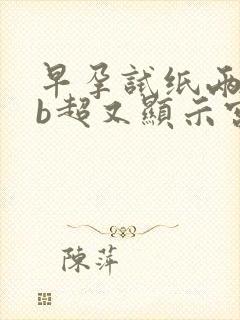 早孕試纸兩
b超又顯示宮
陳萍